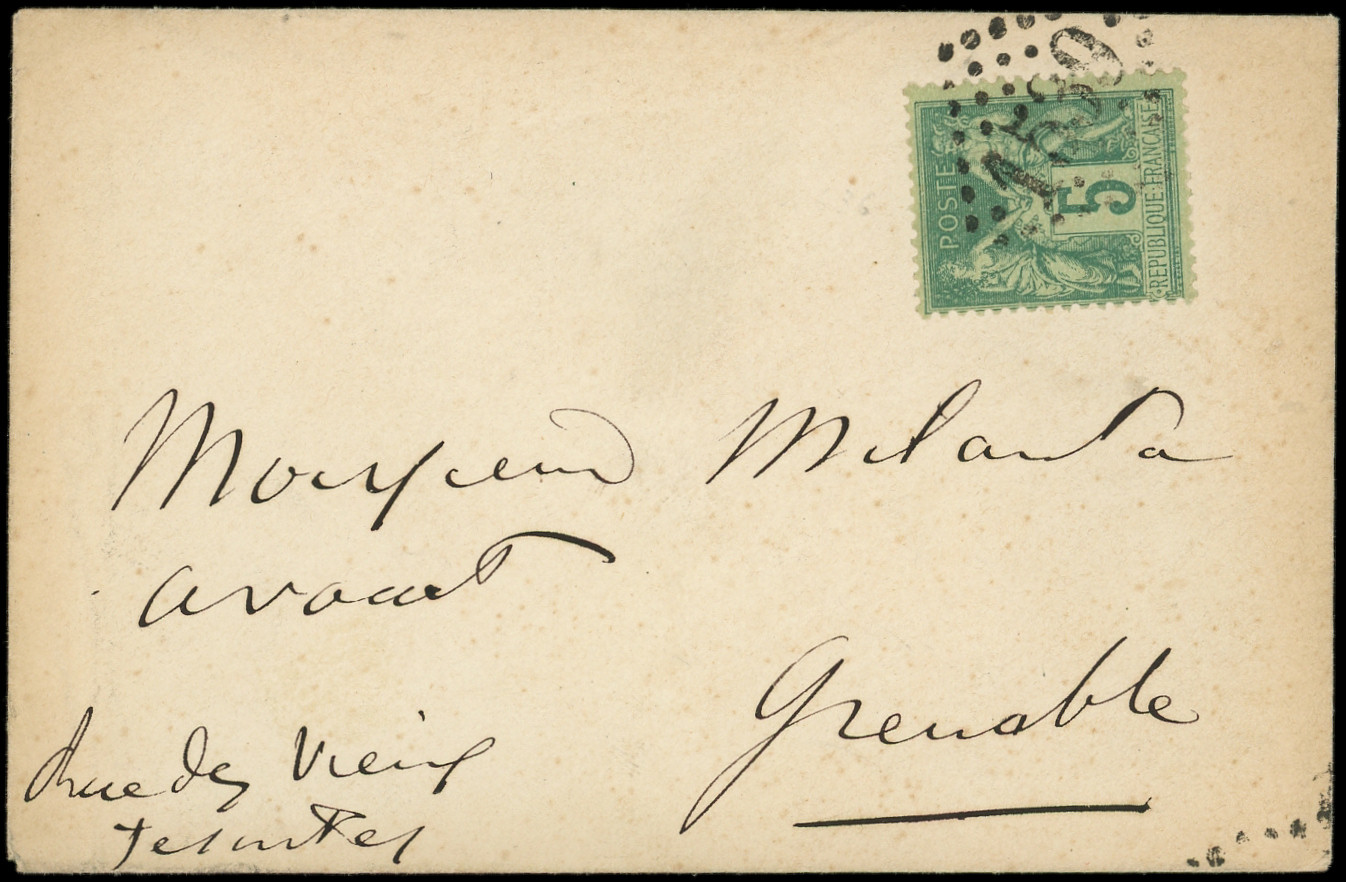 POSTE
5
REPUBLIQUE FRANCAISE
Monsieur
avocat
Grenoble
Rue des Vieux
Jesuites